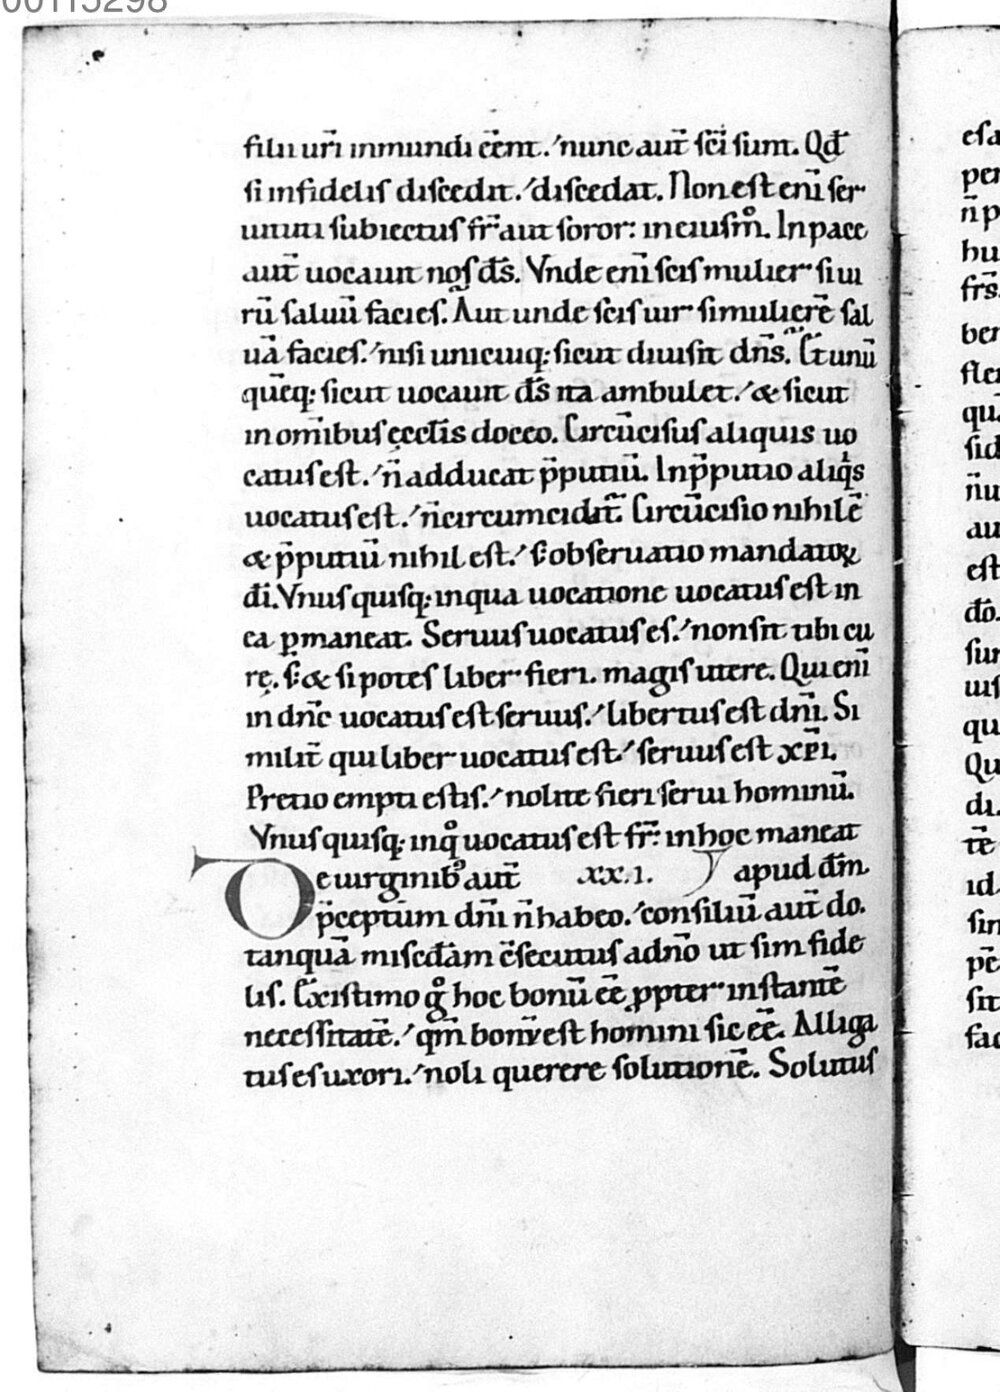 00115298
filii ur̄i inmundi eēnt. nunc aut̄ sc̄i sunt. Qđ
si infidelis discedit. discedat. Non est eni̅ ser
uituti subiectus fr̄ aut soror: in eiusm̊. In pace
aut̄ uocauit nos d̄s. Vnde eni̅ scis mulier si ui
rū saluū facies. Aut unde scis uir si mulierē sal
uā facies. nisi unicuiq; sicut diuisit dn̄s. Et unū
quēq; sicut uocauit d̄s ita ambulet. & sicut
in om̄ibus ęcclīs doceo. Circūcisus aliquis uo
catus est. n̄ adducat p̄putiū. In p̄putio aliq̇s
uocatus est. n̄ circumcidat̄. Circūcisio nihil ē
& p̄putiū nihil est. s; obseruatio mandatoꝝ
d̄i. Vnus quisq; in qua uocatione uocatus est in
ea ꝑmaneat. Seruus uocatus es. non sit tibi cu
rę. s; & si potes liber fieri. magis utere. Qui eni̅
in dn̄o uocatus est seruus. libertus est dn̄i. Si
milit̄ qui liber uocatus est. seruus est xp̄i.
Pretio empti estis. nolite fieri serui hominū.
Vnus quisq; in q̊ uocatus est fr̄: in hoc maneat
De uirginib; aut̄ xx.i. apud d̄m
p̄ceptum dn̄i n̄ habeo. consiliū aut̄ do.
tanquā misc̄dam c̄secutus a dn̄o ut sim fide
lis. Existimo g̊ hoc bonū eē ꝓpter instantē
necessitatē. qm̄ bonū est homini sic eē. Alliga
tus es uxori. noli querere solutionē. Solutus